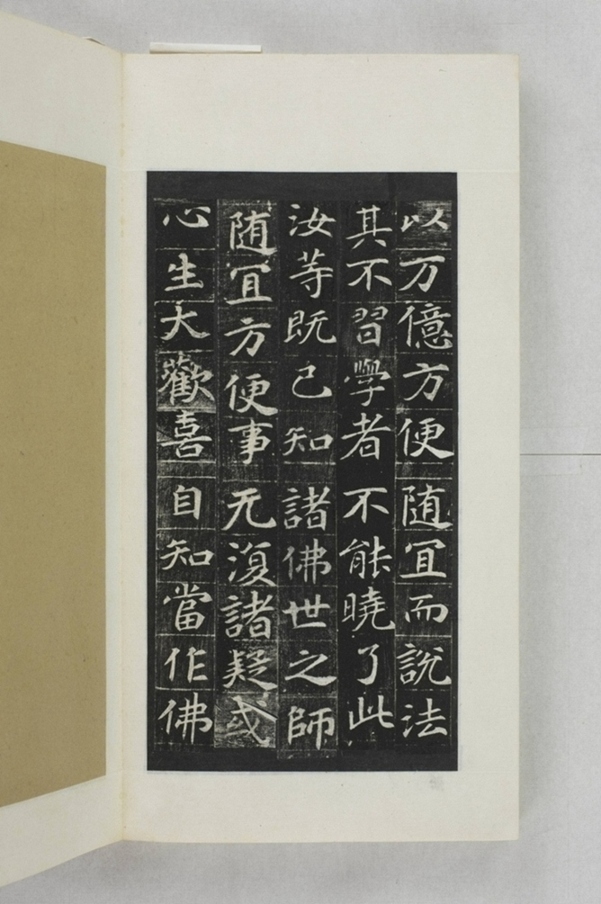 以万億方便随冝而說法
其不習學者不能曉了此
汝等既已知諸佛世之師
随冝方便事无復諸疑惑
心生大歡喜自知當作佛